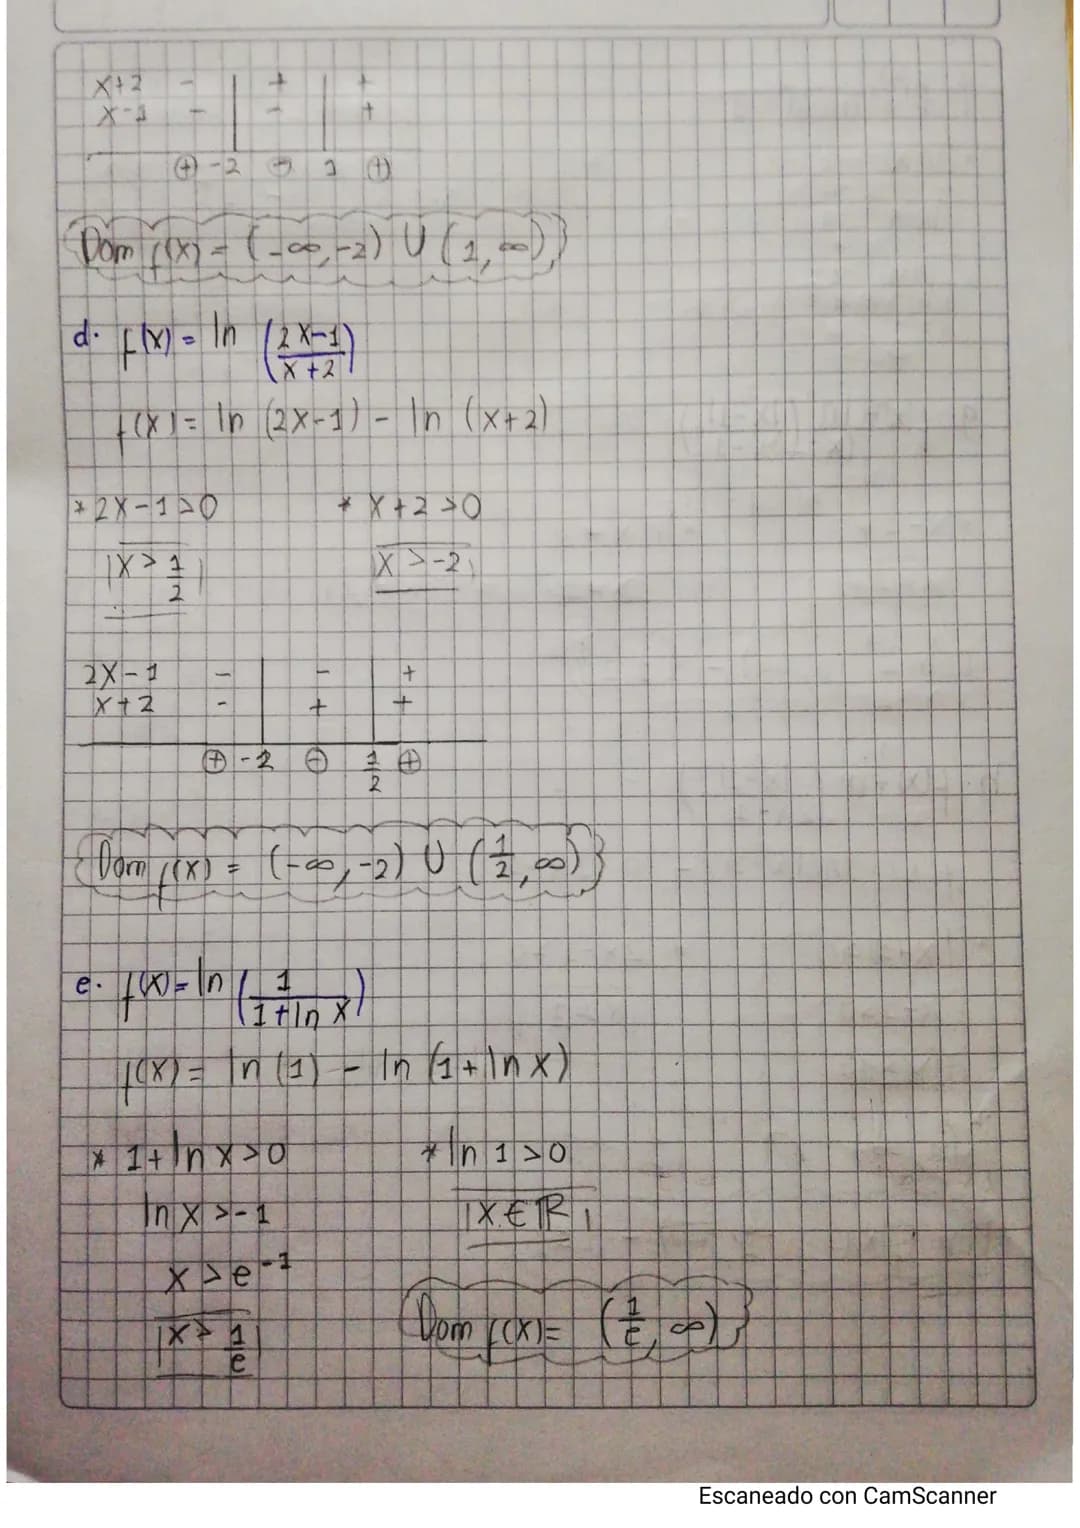 x+2 - | + | +
x-1 - | - | +
⊕ -2 ⊖ 1 ⊕
Dom f(x) = (-∞,-2) U (1,∞)
d. f(x) = ln (2x-1/x+2)
f(x) = ln (2x-1) - ln (x+2)
* 2x-1>0 * x+2>0
x > 1/2 x > -2
2x-1 - | - | +
x+2 - | + | +
⊕ -2 ⊖ 1/2 ⊕
Dom f(x) = (-∞,-2) U (1/2,∞)
e. f(x) = ln (1/1+ln x)
f(x) = ln (1) - ln (1+ln x)
* 1+ln x>0 * ln 1>0
ln x >-1 x ∈ ℝ
x > e⁻¹
x > 1/e Dom f(x) = (1/e, ∞)
Escaneado con CamScanner